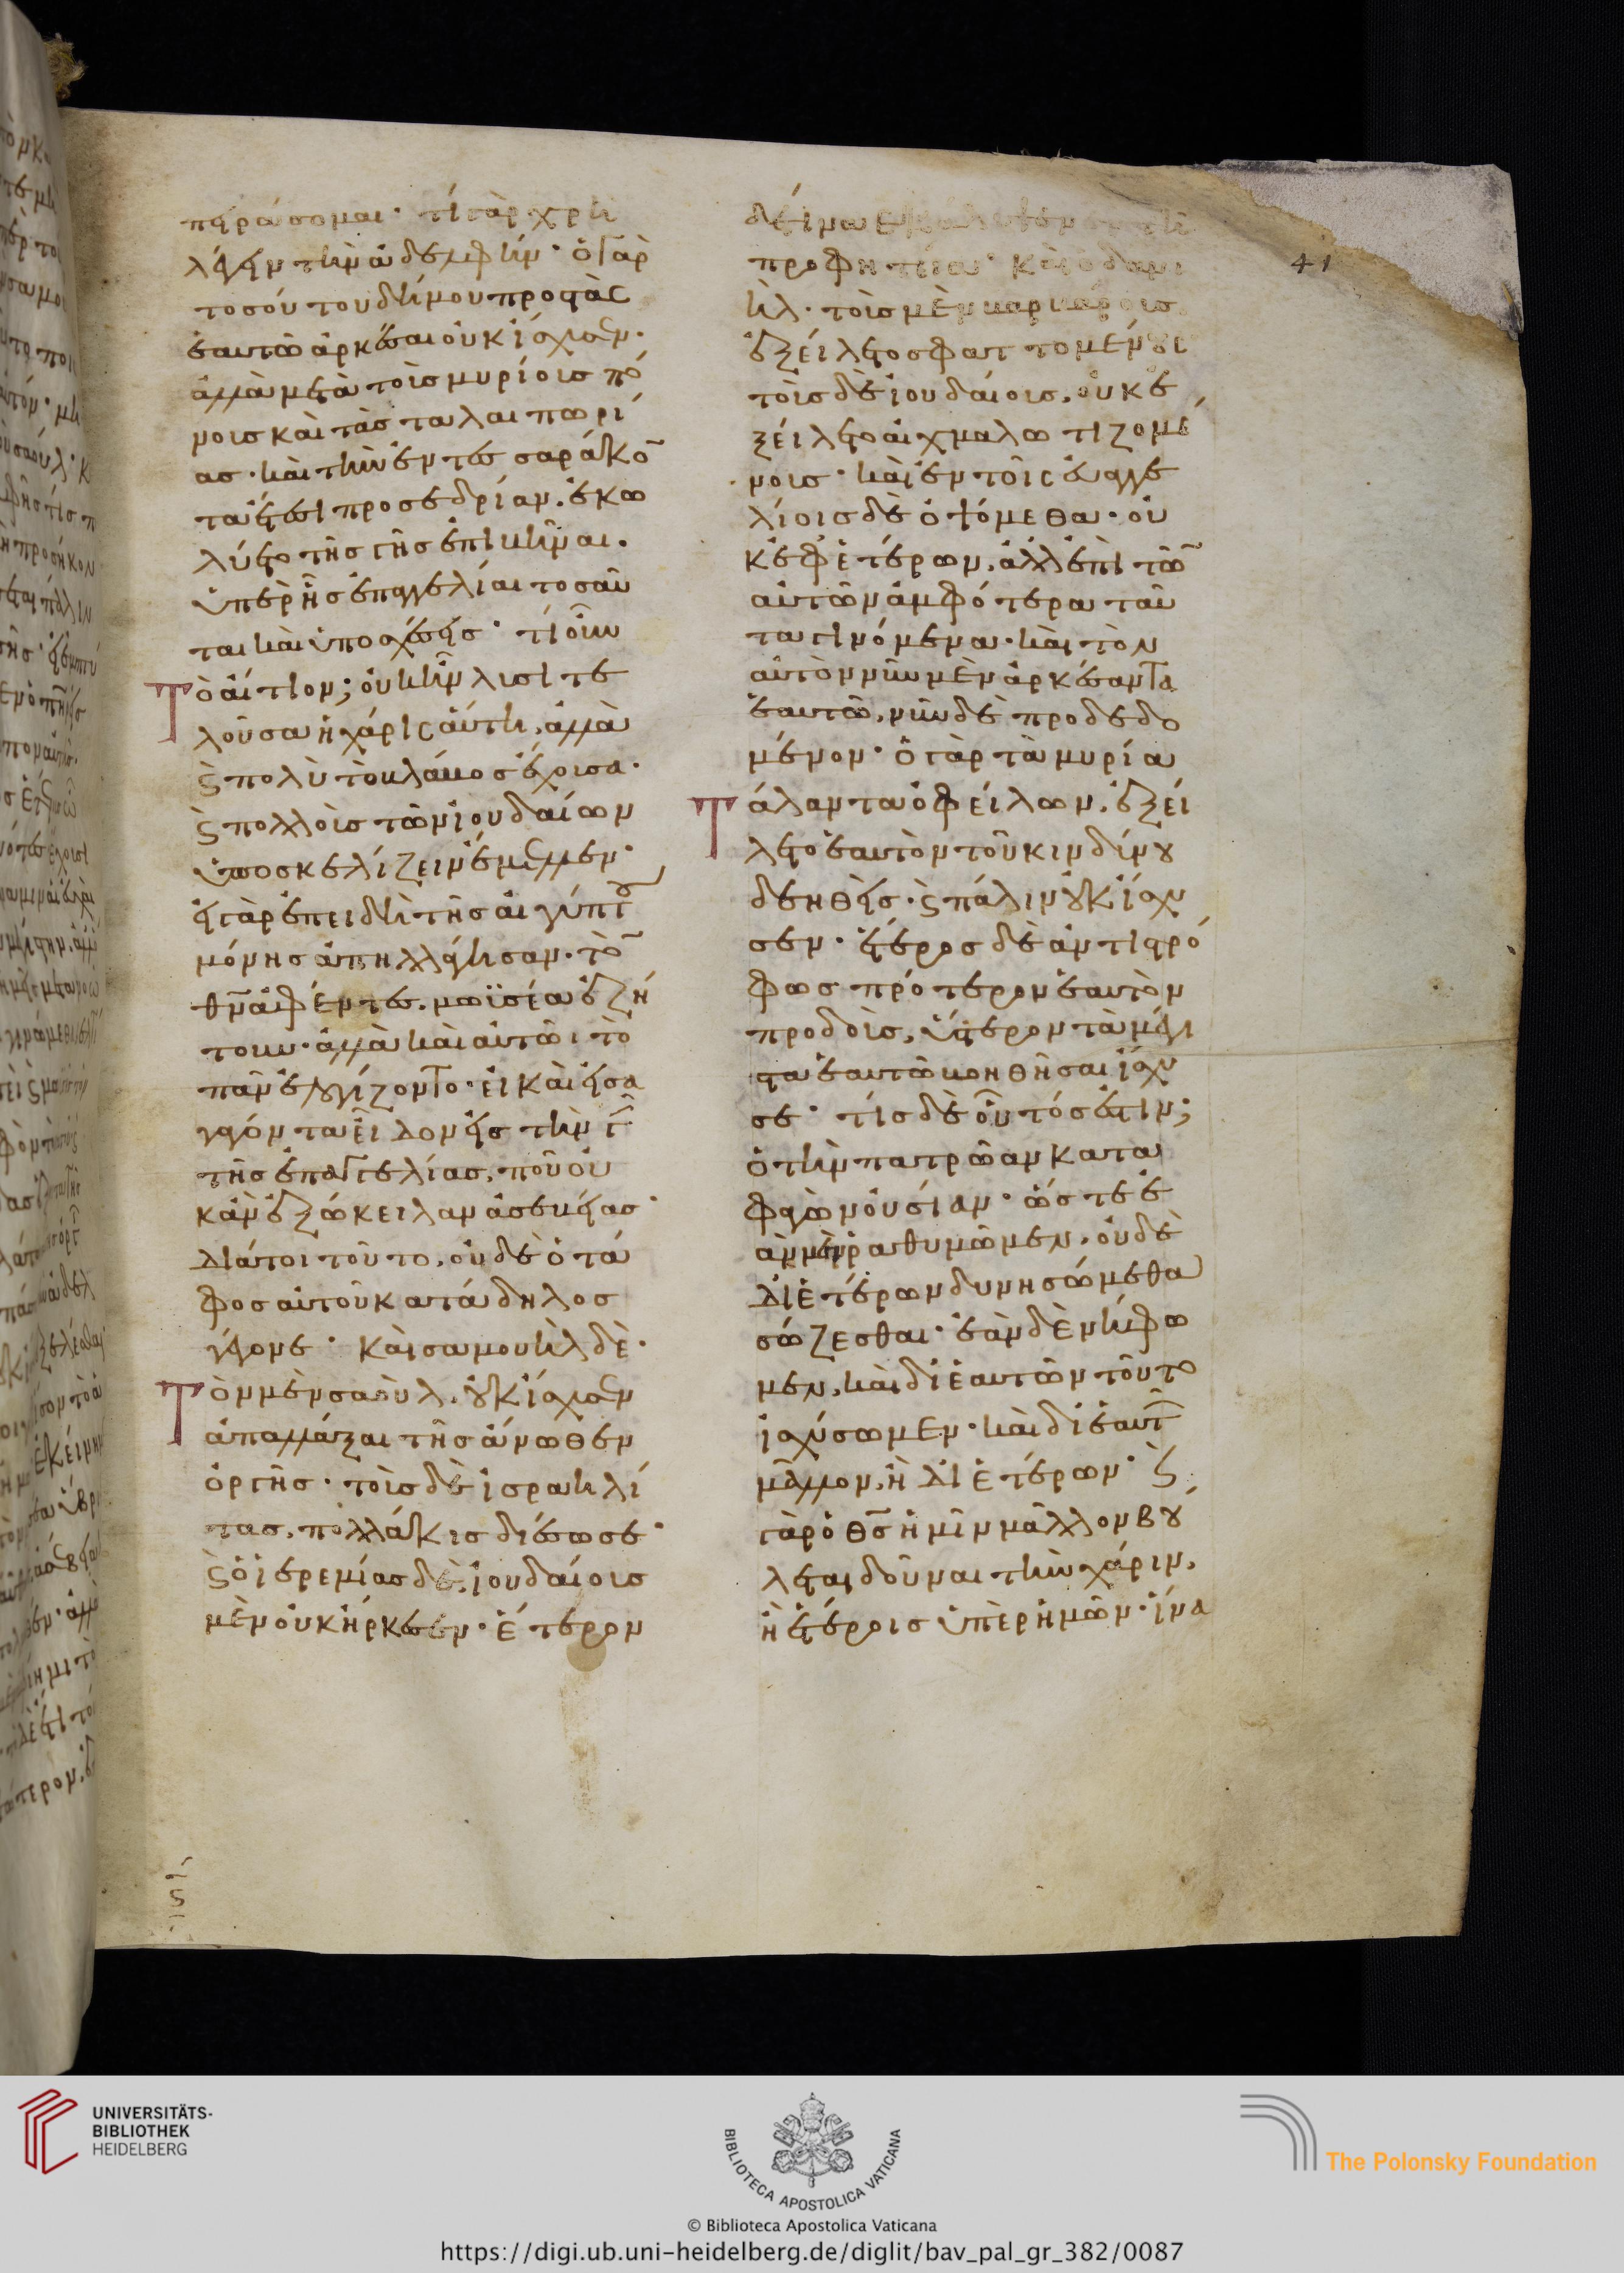 πειράσομαι· τί γὰρ χρὴ
λέγειν τὴν ἀδελφήν· ὁ γὰρ
τοσούτου δήμου προστὰς
ἑαυτῶ ἀρκέσαι οὐκ ἴσχυσεν·
ἀλλὰ μετὰ τοὺς μυρίους πό
νους καὶ τὰς ταλαιπωρί
ας· καὶ τὴν ἐν τεσσαράκο̅
τα ἔτεσι προσεδρίαν. ἐκω
λύετο τῆς γῆς ἐπιβῆναι.
ὑπὲρ ἧς ἐπαγγελίαι τοσαῦ
ται καὶ ὑποσχέσεις· τί οὖν
Τὸ αἴτιον; οὐκ ἦν λυσιτε
λοῦσα ἡ χάρις αὕτη, ἀλλὰ
ϛ πολὺ τὸ βλάβος ἔχουσα·
ϛ πολλοὺς τῶν ἰουδαίων
ὑποσκελίζειν ἔμελλεν·
εἰ γὰρ ἐπειδὴ τῆς αἰγύπτου
μόνης ἀπηλλάγησαν. τὸ̅
θ̅ν̅ ἀφέντες. μωϋσέα ἐζή
τουν· ἀλλὰ καὶ αὐτῶι τὸ
πᾶν ἐλογίζοντο· εἰ καὶ εἰσα
γαγόντα εἶδον εἰς τὴν γῆ̅
τῆς ἐπαγγελίας, ποῦ οὐ
κἂν ἐξώκειλαν ἀσεβείας·
διάτοι τοῦτο, οὐδὲ ὁ τά
φος αὐτοῦ κατάδηλος
γέγονε· καὶ σαμουὴλ δὲ·
Τὸν μὲν σαοὺλ, οὐκ ἴσχυσεν
ἀπαλλάξαι τῆς ἄνωθεν
ὀργῆς· τοὺς δὲ ἰσραηλί
τας, πολλάκις διέσωσε·
ϛ ὁ ἱερεμίας δὲ, ἰουδαίοις
μὲν οὐκ ἤρκεσεν· ἕτερον
προφητείαν· καὶ ὁ δανι
ὴλ· τοὺς μὲν βαρβάρους
ἐξείλετο σφαττομένους
τοὺς δὲ ἰουδαίους, οὐκ ἐ
ξείλετο αἰχμαλωτιζομέ
νους· καὶ ἐν τοῖς εὐαγγε
λίοις δὲ ὀψόμεθα· οὐ
κ ἐφ ἑτέρων, ἀλλ ἐπὶ τῶ̅
αὐτῶν ἀμφότερα ταῦ
τα γινόμενα· καὶ τὸν
αὐτὸν νῦν μὲν ἀρκέσαντα
ἑαυτῶ, νῦν δὲ προδεδο
μένον· ὁ γὰρ τὰ μυρία
Τάλαντα ὀφείλων, ἐξεί
λετο ἑαυτὸν τοῦ κινδύνου
δεηθεὶς· ϛ πάλιν οὐκ ἴσχυ
σεν· ἕτερος δὲ ἀντιστρό
φως πρότερον ἑαυτὸν
προδοὺς, ὕστερον τὰ μέγι
στα ἑαυτῶ βοηθῆσαι ἴσχυ
σε· τίς δὲ οὗτός ἐστιν;
ὁ τὴν πατρῶαν κατα
φαγὼν οὐσίαν· ὥστε ἐ
ὰν μὲν ῥαθυμῶμεν, οὐδὲ
δι ἑτέρων δυνησώμεθα
σώζεσθαι· ἐὰν δὲ νήφω
μεν, καὶ δι ἑαυτῶν τοῦτο
ἰσχύσωμεν· καὶ δι ἑαυτῶ̅
μᾶλλον, ἢ δι ἑτέρων· ϛ
γὰρ ὁ θ̅ς̅ ἡμῖν μᾶλλον βού
λεται δοῦναι τὴν χάριν,
ἢ ἑτέροις ὑπὲρ ἡμῶν· ἵνα
41
UNIVERSITÄTS-
BIBLIOTHEK
HEIDELBERG
BIBLIOTECA APOSTOLICA VATICANA
© Biblioteca Apostolica Vaticana
The Polonsky Foundation
https://digi.ub.uni-heidelberg.de/diglit/bav_pal_gr_382/0087